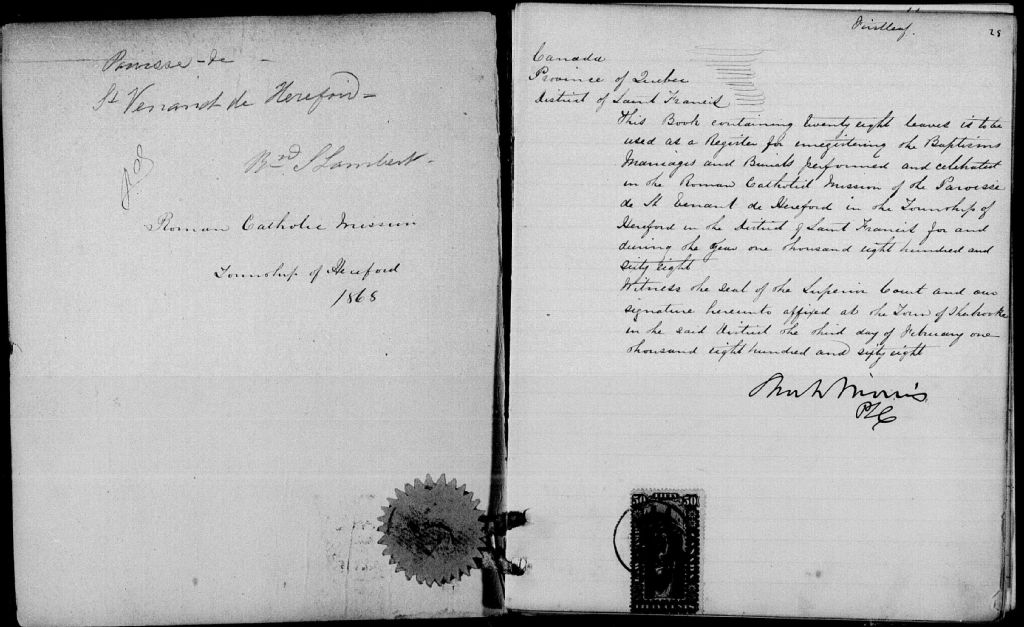 Paroisse de
St Venant de Hereford
Roman Catholic Mission
Township of Hereford
1868
First leaf.
28
Canada
Province of Quebec
District of Saint Francis
This Book containing twenty eight leaves is to be
used as a Register for enregistering the Baptisms
Marriages and Burials performed and celebrated
in the Roman Catholic Mission of the Paroisse
de St Venant de Hereford in the Township of
Hereford in the District of Saint Francis for and
during the Year one thousand eight hundred and
sixty eight
Witness the seal of the Superior Court and our
signature hereunto affixed at the Town of Sherbrooke
in the said District the third day of February one
thousand eight hundred and sixty eight
Morris
50 FIFTY 50
FIFTY CENTS